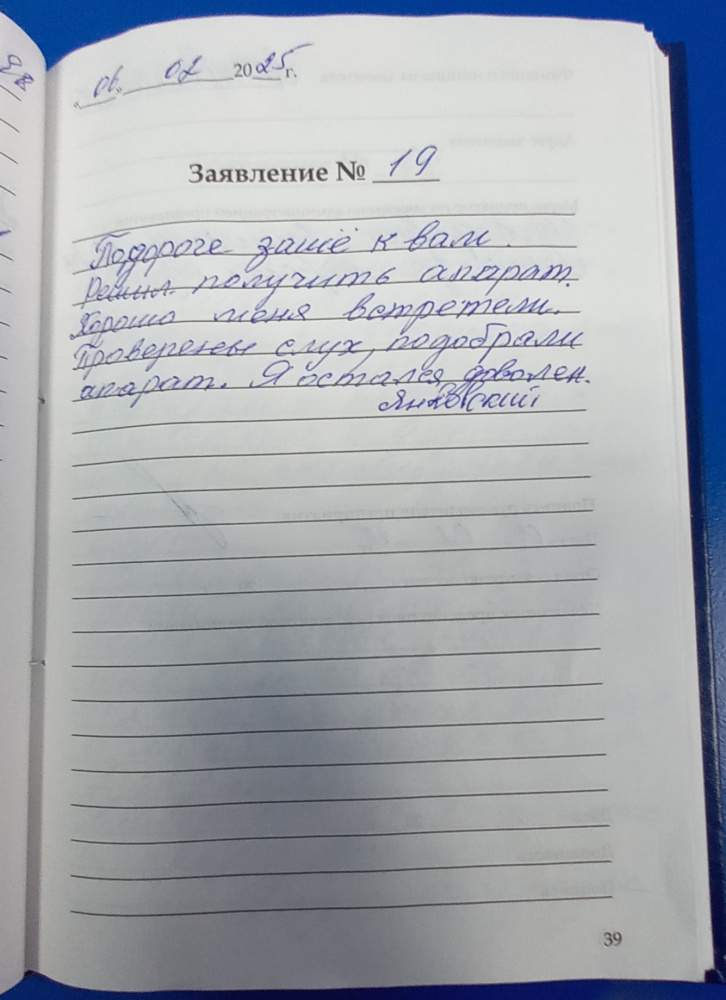 «06» 02 2025 г.
Заявление № 19
Подороге зашё к вам.
Решил получить апарат.
Хорошо меня встретели.
Проверены слух, подобрали
апарат. Я остался доволен.
Янковский
39